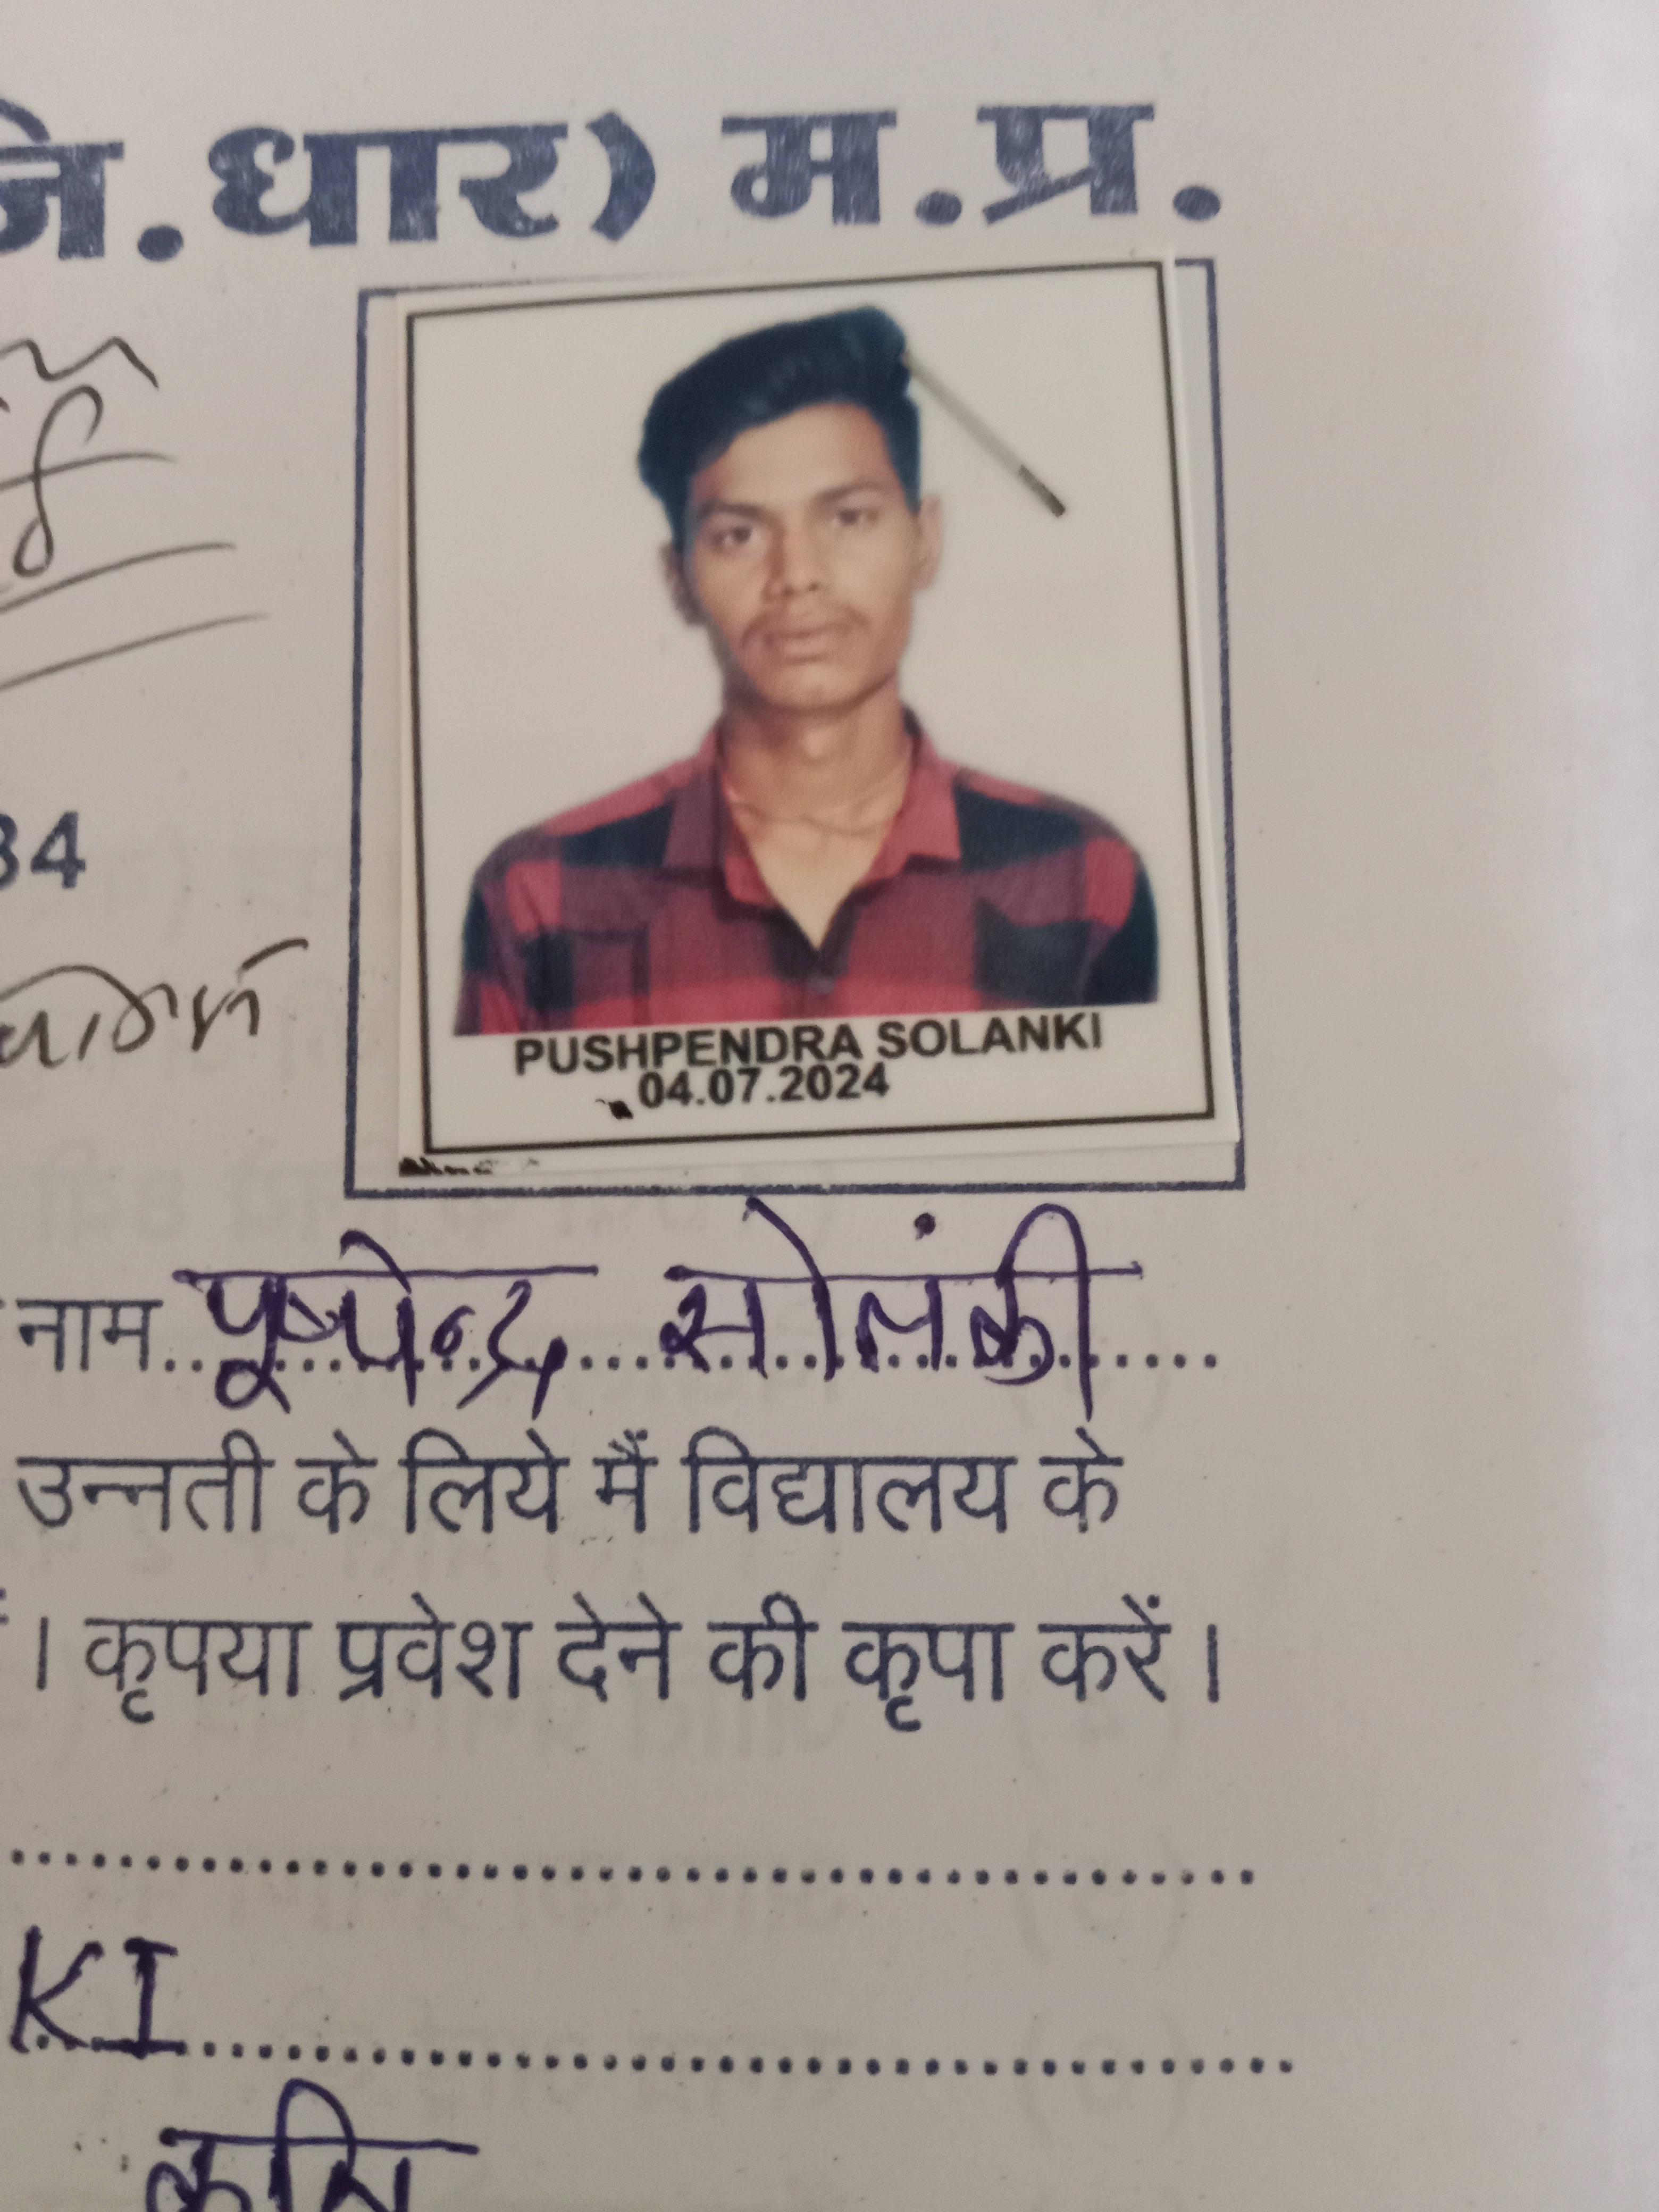 जि.धार) म.प्र.
34
PUSHPENDRA SOLANKI
04.07.2024
नाम पूष्पेन्द्र सोलंकी
उन्नती के लिये मैं विद्यालय के
। कृपया प्रवेश देने की कृपा करें।
KI